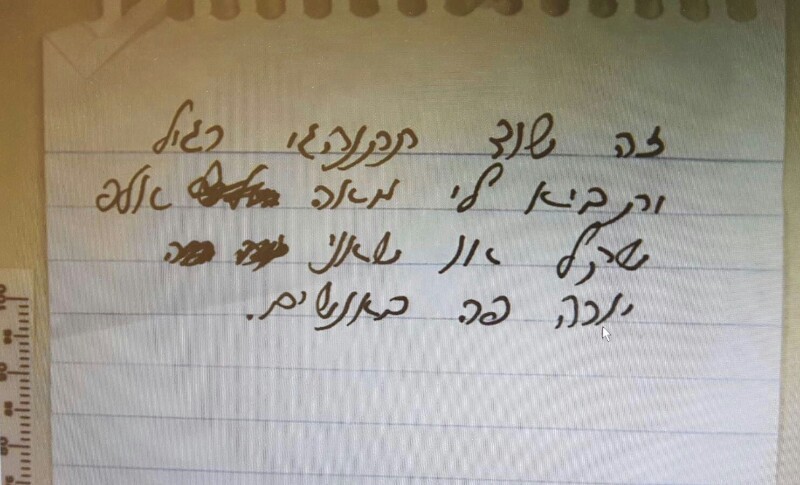 זה שוד תתנהגי רגיל
ותביא לי מאה אלפ
שקל או שאני
יורה פה באנשים.